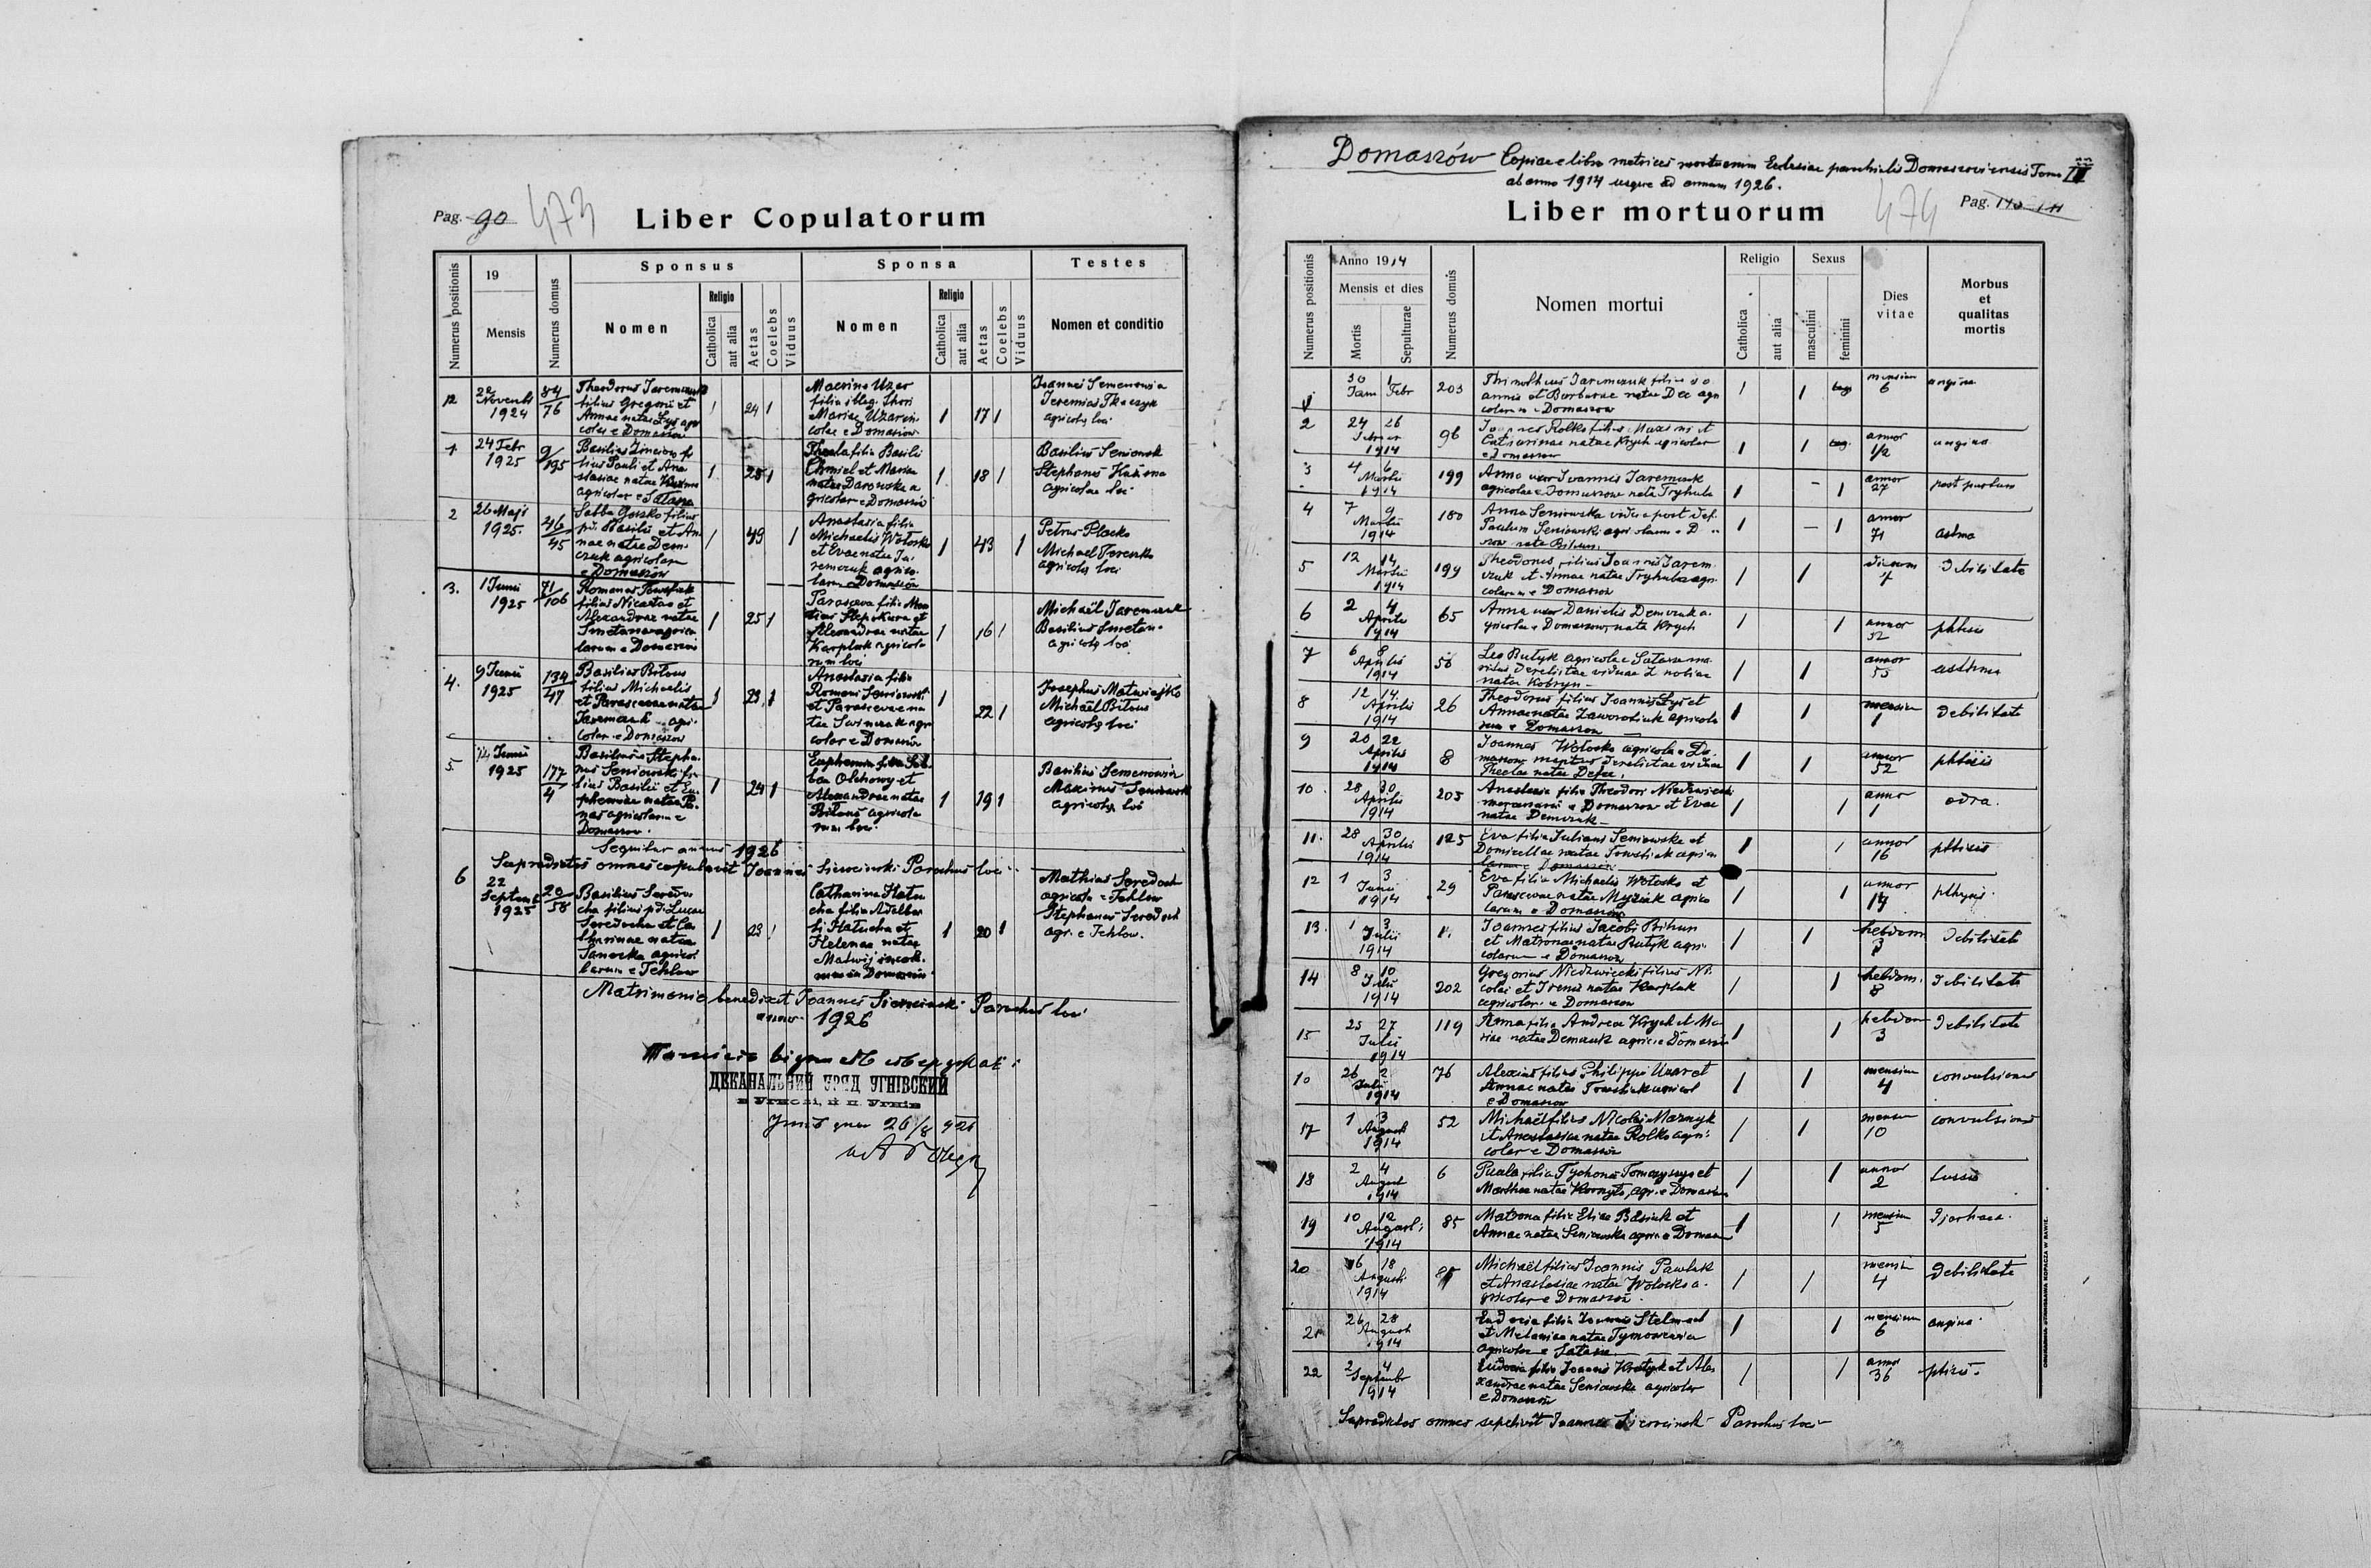 Pag. 90 473
Liber Copulatorum
Numerus positionis
19
Mensis
Numerus domus
Sponsus
Nomen
Religio
Catholica
aut alia
Aetas
Coelebs
Viduus
Sponsa
Nomen
Religio
Catholica
aut alia
Aetas
Coelebs
Viduus
Testes
Nomen et conditio
12
22
Novemb
1924
84
76
Theodorus Jaremczuk
filius Gregorii et
Annae natae Lys agri
colar e Domaszow
24
Macrina Uzar
filia illeg.
Mariae Uzar
colae e Domaszow
17
Joannes Semenowicz
Jeremias Tkaczyk
agricolę loci
1
24 Febr
1925
9
195
Basilius
lius Pauli et Ana
stasiae natae
agricolar e
25
Thecla filia Basilii
Chmiel et Mariae
natae a
gricolar e Domaszow
18
Basilius Seniowsk
Stephanus
agricolae loci
2
26 Maji
1925.
46
45
Sabba Goszko filius
pđ. Basilii et An
nae natae Dem
czuk agricolarum
e Domaszow
49
Anastasia filia
Michaelis Wołosko
et Evae natae Ja
remczuk agrico
larum e Domaszów
43
Petrus Placko
Michael
agricolę loci
3.
1 Junii
1925
71
106
Romanus
filius Nicetae et
Alexandrae natae
Smetana agrico
larum e Domaszów
25
Parasceva filia
et
Alexandrae natae
Karplak agricola
rum loci
16
Michaël Jaremczuk
Basilius Smetana
agricolę loci
4.
9 Junii
1925
134
47
Basilius Bitous
filius Michaelis
et Parascevae natae
Jaremczuk agri
colar e Domaszow
23
Anastasia filia
Romani Seniowski
et Parascevae na
tae agri
colar e Domaszów
22
Josephus Matwiejko
Michaël Bitous
agricolę loci
5
14 Junii
1925
177
4
Basilius Stepha
nus Seniowski fi
lius Basilii et Eu
phemiae natae Pa
nas agricolarum e
Domaszow.
24
Euphemia filia
Olchowy et
Alexandrae natae
Bitous agricola
rum loci
19
Basilius Semenowicz
Maximus Seniowsk
agricolę loci
Sequitur annus 1926
Supradictos omnes copulavit Joannes Sierocinski Parochus loci
6
22
Septemb
1925
20
58
Basilius Seredo
cha filius pđ. Lucae
Seredocha et Ca
tharinae natae
Sanocka agrico
larum e Tehlow
23
Catharina Hatu
cha filia Adalber
ti Hatucha et
Helenae natae
Matwij incola
rum in Domaszow
20
Mathias Seredoch
agricola e Tehlow
Stephanus Seredoch
agr. e Tehlow.
Matrimonio benedixit Joannes Sierocinski Parochus loci
anno 1926
ДЕКАНАЛЬНИЙ УРЯД УГНІВСКИЙ
в Угнові, п. п. Угнів
26/8 926
Domaszów Copiae e libro metrices mortuorum Ecclesiae parochialis Domaszoviensis Tomo III
ab anno 1914 usque ad annum 1926.
Liber mortuorum
474
Pag. 110 111
Numerus positionis
Anno 1914
Mensis et dies
Mortis
Sepulturae
Numerus domus
Nomen mortui
Religio
Catholica
aut alia
Sexus
masculini
feminini
Dies
vitae
Morbus
et
qualitas
mortis
30 1
Jan Febr
203
Thimotheus Jaremczuk filius Jo
annis et Barbarae natae Dec agri
colarum e Domaszow
mensium
6
angina
2
24 26
Februar
1914
96
Joannes Rolko filius Maximi et
Catharinae natae Krych agricolar
e Domaszow
annor
1/2
angina
3
4 6
Martii
1914
199
Anna uxor Joannis Jaremczuk
agricolae e Domaszow nata Tryhuba
annor
27
post partum
4
7 9
Martii
1914
180
Anna Seniowska vidua post def.
Paulum Seniowski agricolam e Do
szow nata Bihun.
annor
71
astma
5
12 14
Martii
1914
199
Theodorus filius Joannis Jarem
czuk et Annae natae Tryhuba agri
colarum e Domaszow
dierum
7
debilitate
6
2 4
Aprilis
1914
65
Anna uxor Danielis Demczuk a
gricolae e Domaszow, nata Krych
annor
52
phtisis
7
6 8
Aprilis
1914
56
Leo Butyk agricola e Satarnia
vidus derelictae viduae
natae Kobryn
annor
55
asthma
8
12 14.
Aprilis
1914
26
Theodorus filius Joannis Lys et
Annae natae Zaworotiuk agricola
rum e Domaszow
mensium
1
debilitate
9
20 22
Aprilis
1914
8
Joannes Wołosko agricola e Do
maszow maritus derelictae viduae
Theclae natae
annor
52
phtisis
10
28 30
Aprilis
1914
203
Anastasia filia Theodori Niedzwiecki
mercenarii e Domaszow et Evae
natae Demczuk
annor
1
odra.
11.
28 30
Aprilis
1914
125
Eva filia Juliani Seniowski et
Domicellae natae agrico
larum e Domaszow
annor
16
phtisis
12
1 3
Junii
1914
29
Eva filia Michaelis Wołosko et
Parascevae natae agrico
larum e Domaszow
annor
17
phtysis.
13.
1 3
Julii
1914
Joannes filius Jacobi Bihun
et Matronae natae Butyk agri
colarum e Domaszow
hebdom
3
debilitate
14
8 10
Julii
1914
202
Gregorius Niedzwiecki filius Ni
colai et Irenis natae Karplak
agricolar. e Domaszow
hebdom.
8
debilitate
15
25 27
Julii
1914
119
Anna filia Andreae Krych et Ma
riae natae Demczuk agric. e Domaszow
hebdom
3
debilitate
16
26 2
Julii
1914
76
Alexius filius Philippi Uzar et
Annae natae agricol
e Domaszow
mensium
4
convulsiones
17
1 3
August
1914
52
Michaël filius Nicolai Mazuryk
et Anastasiae natae Rolko agri
colar e Domaszow
mensium
10
convulsiones
18
2 4
August
1914
6
Paula filia Tychonis et
Marthae natae Kornyło, agr. e Domaszow
annor
2
tussis
19
10 12
August:
1914
85
Matrona filia Eliae et
Annae natae Seniowska agric e Domaszow
mensium
5
djarhaea.
20
16 18
Augusti
1914
Michaël filius Joannis Pawluk
et Anastasiae natae Wołosko a
gricolar e Domaszow.
mensium
4
debilitate
21
26 28
August
1914
Eudocia filia Joannis Stelmach
et Melaniae natae Tymosewicz
agricolar e
mensium
6
angina.
22
2 4
Septembr
1914
Eudocia filia Joannis Krotyk et Ale
xandrae natae Seniowska agricolar
e Domaszow
annor
36
phtisis.
Supradictos omnes sepelivit Joannes Sierocinski Parochus loci
DRUKARNIA STANISŁAWA KOPACZA W RAWIE.